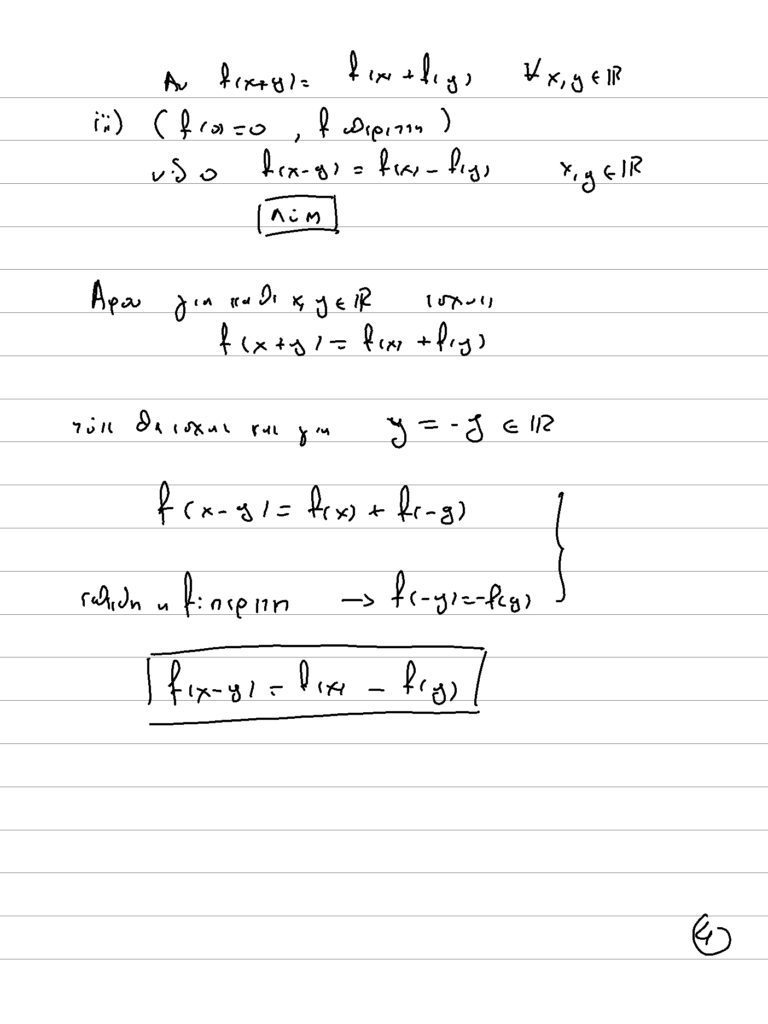 Αν f(x+y) = f(x) + f(y) ∀ x, y ∈ ℝ
iii) (f(0)=0, f περιττη)
νδο f(x-y) = f(x) - f(y) x, y ∈ ℝ
Λύση
Αφου για καθε x, y ∈ ℝ ισχυει
f(x+y) = f(x) + f(y)
τότε θα ισχυει και για y = -y ∈ ℝ
f(x-y) = f(x) + f(-y)
επειδη η f: περιττη → f(-y) = -f(y)
f(x-y) = f(x) - f(y)
4